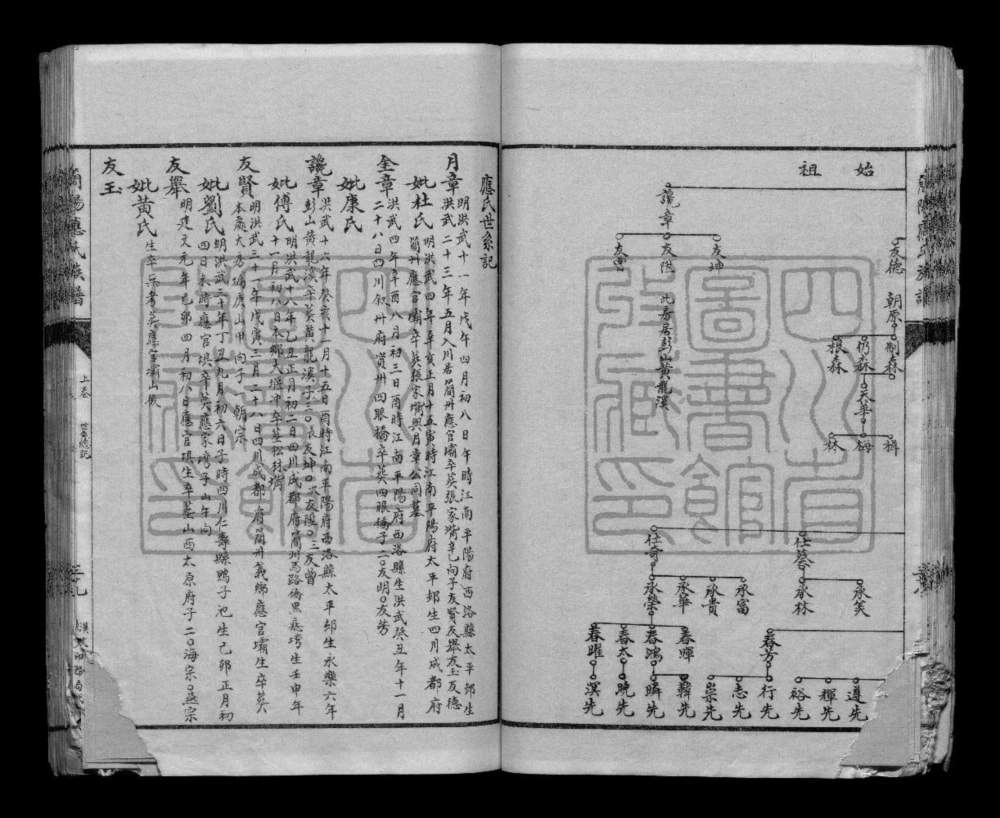 始祖
友德
朝原
制森
扔森
根森
天華
栂
林
讒章
友坤
友陞
友曽
此房居彭山黄龍溪
仕蔡
承美
承林
仕奇
承富
承貴
承華
承榮
春芳
春暉
春鴻
春太
春躍
遵先
輝先
裕先
行先
志先
崇先
韓先
曉先
溟先
四川省
圖書館
藏印
應氏世系記
月章
明洪武十一年戊午四月初八日午時江南平陽府西路縣太平鄉生
洪武二十三年五月入川居簡州應官壩卒葬張家塆辛乙向子友賢友舉友玉友德
妣杜氏
明洪武四年辛亥正月十五寅時江南平陽府太平鄉生四月成都府
簡州應官壩卒葬張家塆與月章公同墓
奎章
洪武四年辛酉八月初三日酉時江南平陽府西洛縣生洪武癸丑年十一月
二十八日四川叙州府資州四眼橋卒葬四眼橋子二〇友明〇友芳
妣康氏
讒章
洪武十六年癸亥十一月十五日酉時江南平陽府西洛縣太平鄉生永樂六年
彭山黄龍溪卒葬黄龍溪子三〇長友坤〇次友陞〇三友曾
妣傅氏
明洪武十八年乙丑正月初二日四川成都府簡州馬路橋
十一月初八日本鄉大堰冲卒葬松林塆
友賢
明洪武三十一年戊寅三月二十八日四川成都府簡州義鄉應官壩生卒葬
本處大房塆庚山甲向子一朝宗
妣劉氏
明洪武三十年丁丑九月初六日子時四川仁壽縣鴨子池生己卯正月初
四日未時應官壩卒葬應家塆子山午向
友舉
明建文元年己卯四月初八日應官壩生卒葬山西太原府子二〇海宗〇燕宗
妣黄氏
生卒無考葬應官壩山後
友玉
上卷
世系總記